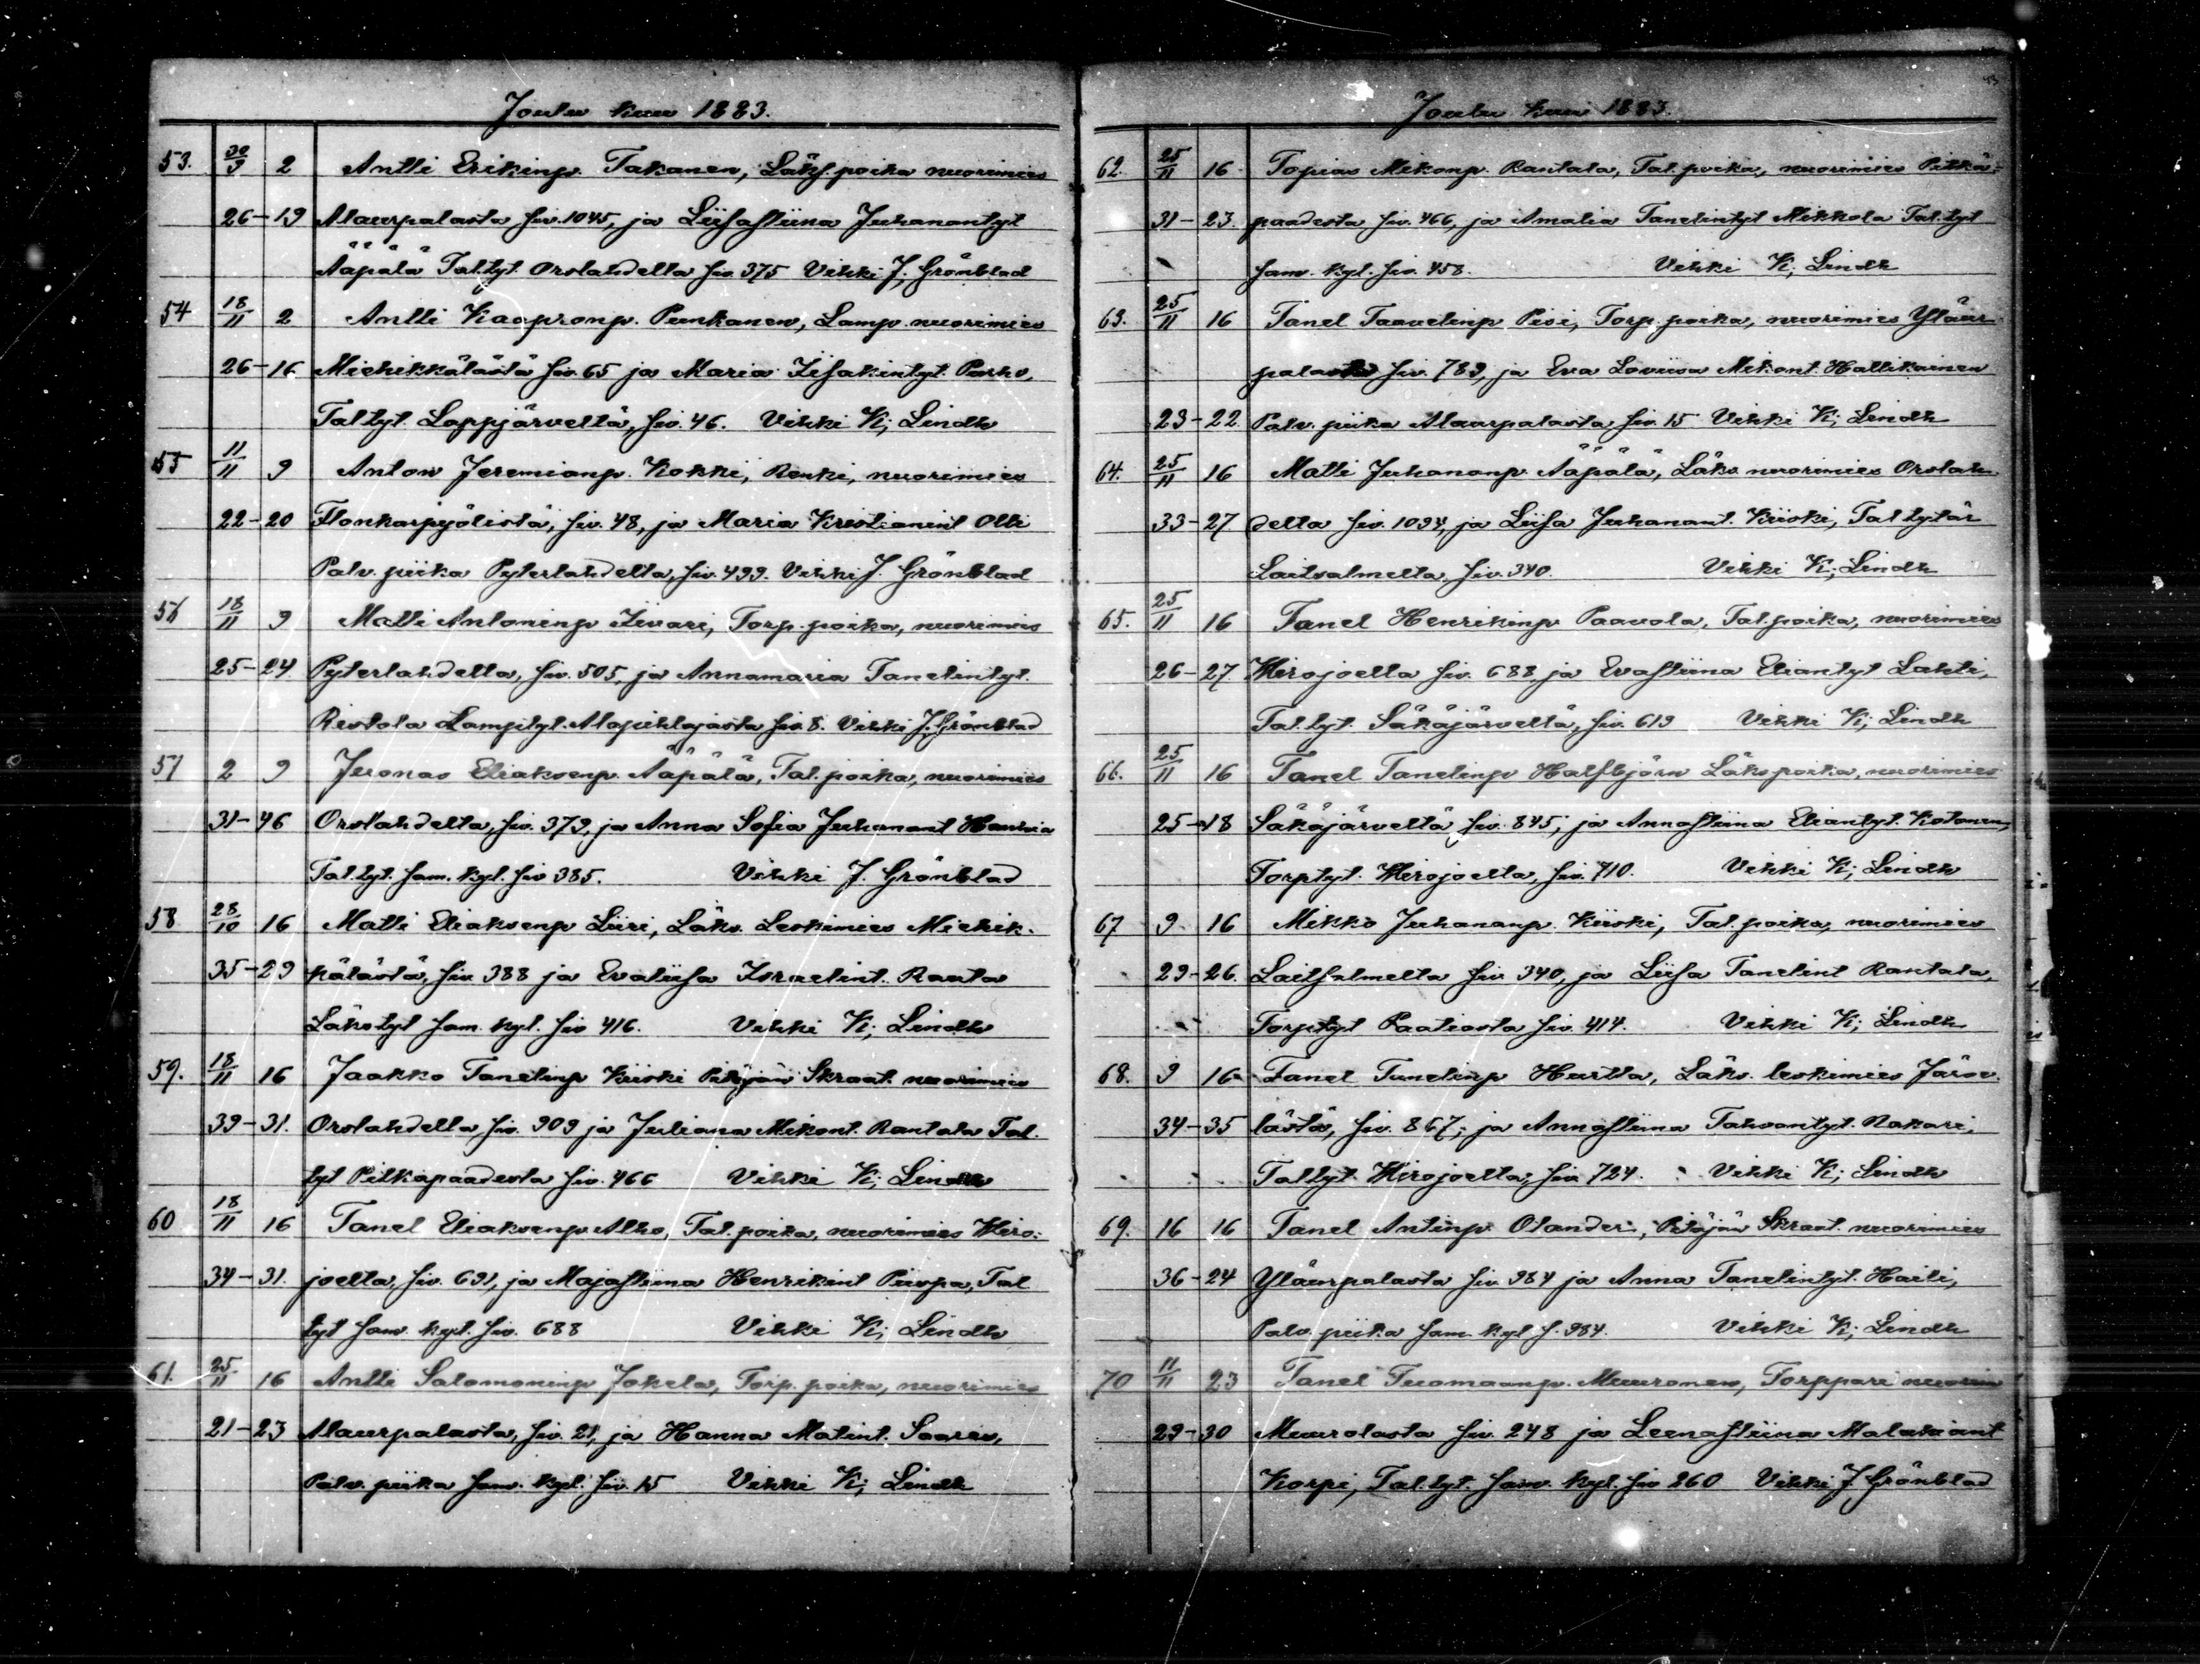 Joulu kuu 1883.
53. 30/9 2 Antti Erikinp. Takanen, Läks. poika nuorimies
26-19 Alaurpalasta siv. 1045, ja Liisastiina Juhanantyt
Ääpälä Tal. tyt. Orslahdelta siv. 375 Vihki J. Grönblad
54 18/11 2 Antti Kaapronp. Punkanen, Lamp. nuorimies
26-16 Miehikkälästä siv. 65 ja Maria Iisakintyt.
Tal tyt. Lappjärveltä, siv. 46. Vihki K; Lindh
55 11/11 9 Anton Jeremianp. Kokki, Renki, nuorimies
22-20 siv. 48, ja Maria Kristianint Olli
Palv. piika Pyterlahdelta, siv. 499. Vihki J. Grönblad
56 18/11 9 Matti Antoninp Iivari, Torp. poika, nuorimies
25-24 Pyterlahdelta, siv. 505, ja Annamaria Tanelintyt.
Ristola Lampityt. Alapihlajasta siv 8. Vihki J. Grönblad
57 2 9 Juonas Eliaksenp. Ääpälä, Tal. poika, nuorimies
31-46 Orslahdelta, siv. 379, ja Anna Sofia Juhanant
Tal. tyt. sam. kyl. siv 385. Vihki J. Grönblad
58 28/10 16 Matti Eliaksenp Liiri, Läks. Leskimies Miehik-
35-29 kälästä, siv. 388 ja Evaliisa Israelint. Rauta
Läks tyt sam. kyl. siv 416. Vihki K; Lindh
59. 18/11 16 Jaakko Tanelinp Kiiski Pitäjän Skraat. nuorimies
39-31. Orslahdelta siv. 909 ja Juliana Mikont. Rantala Tal.
tyt Pitkäpaadesta siv. 466 Vihki K; Lindh
60 18/11 16 Tanel Eliaksenp. Alho, Tal. poika, nuorimies Wiro-
34-31. joelta, siv. 691, ja Majastiina Henrikint Piispa, Tal
tyt sam. kyl. siv. 688 Vihki K; Lindh
61. 25/11 16 Antti Salomoninp Jokela, Torp. poika, nuorimies
21-23 Alaurpalasta, siv. 21, ja Hanna Matint. Saaren,
Palv. piika sam. kyl. siv. 15 Vihki K; Lindh
Joulu kuu 1883.
62. 25/11 16 Topias Mikonp. Rantala, Tal. poika, nuorimies Pitkä-
31-23. paadesta siv. 466, ja Amalia Tanelintyt Mikkola Tal. tyt
sam. kyl. siv. 458. Vihki K; Lindh
63. 25/11 16 Tanel Taavetinp Pisi, Torp. poika, nuorimies Yläur-
palasta siv. 789, ja Eva Loviisa Mikont. Hallikainen
23-22 Palv. piika Alaurpalasta, siv. 15 Vihki K; Lindh
64. 25/11 16 Matti Juhananp. Ääpälä, Läks. nuorimies Orslah-
33-27 delta siv. 1094, ja Liisa Juhanant. Kiiski, Tal tytär
Laitsalmelta, siv. 340. Vihki K; Lindh
65. 25/11 16 Tanel Henrikinp Paavola, Tal. poika, nuorimies
26-27 Wirojoelta siv. 688 ja Evastiina Eliantyt Lahti,
Tal. tyt. Säkäjärveltä, siv. 619 Vihki K; Lindh
66. 25/11 16 Tanel Tanelinp Halfbjörn Läks poika, nuorimies
25-18 Säkäjärveltä siv. 845, ja Annastiina Eliantyt. Kotonen,
Torp tyt. Wirojoelta, siv. 710. Vihki K; Lindh
67 9 16 Mikko Juhananp. Kiiski, Tal. poika, nuorimies
29-26. Laitsalmelta siv 340, ja Liisa Tanelint Rantala,
Torp tyt Paatiosta siv. 414. Vihki K; Lindh
68. 9 16 Tanel Tanelinp Hurtta, Läks. leskimies Järve-
34-35 lästä, siv. 867, ja Annastiina Tahvontyt. Nakari,
Tal tyt. Wirojoelta, siv. 724. Vihki K; Lindh
69. 16 16 Tanel Antinp. Olander, Pitäjän Skraat. nuorimies
36-24 Yläurpalasta siv. 984 ja Anna Tanelintyt. Haili,
Palv. piika sam. kyl s. 984. Vihki K; Lindh
70 11/11 23 Tanel Tuomaanp. Muuronen, Torppari nuorim
29-30 Muurolasta siv. 248 ja Leenastiina Malakiant
Korpi, Tal. tyt. sam. kyl. siv 260 Vihki J. Grönblad